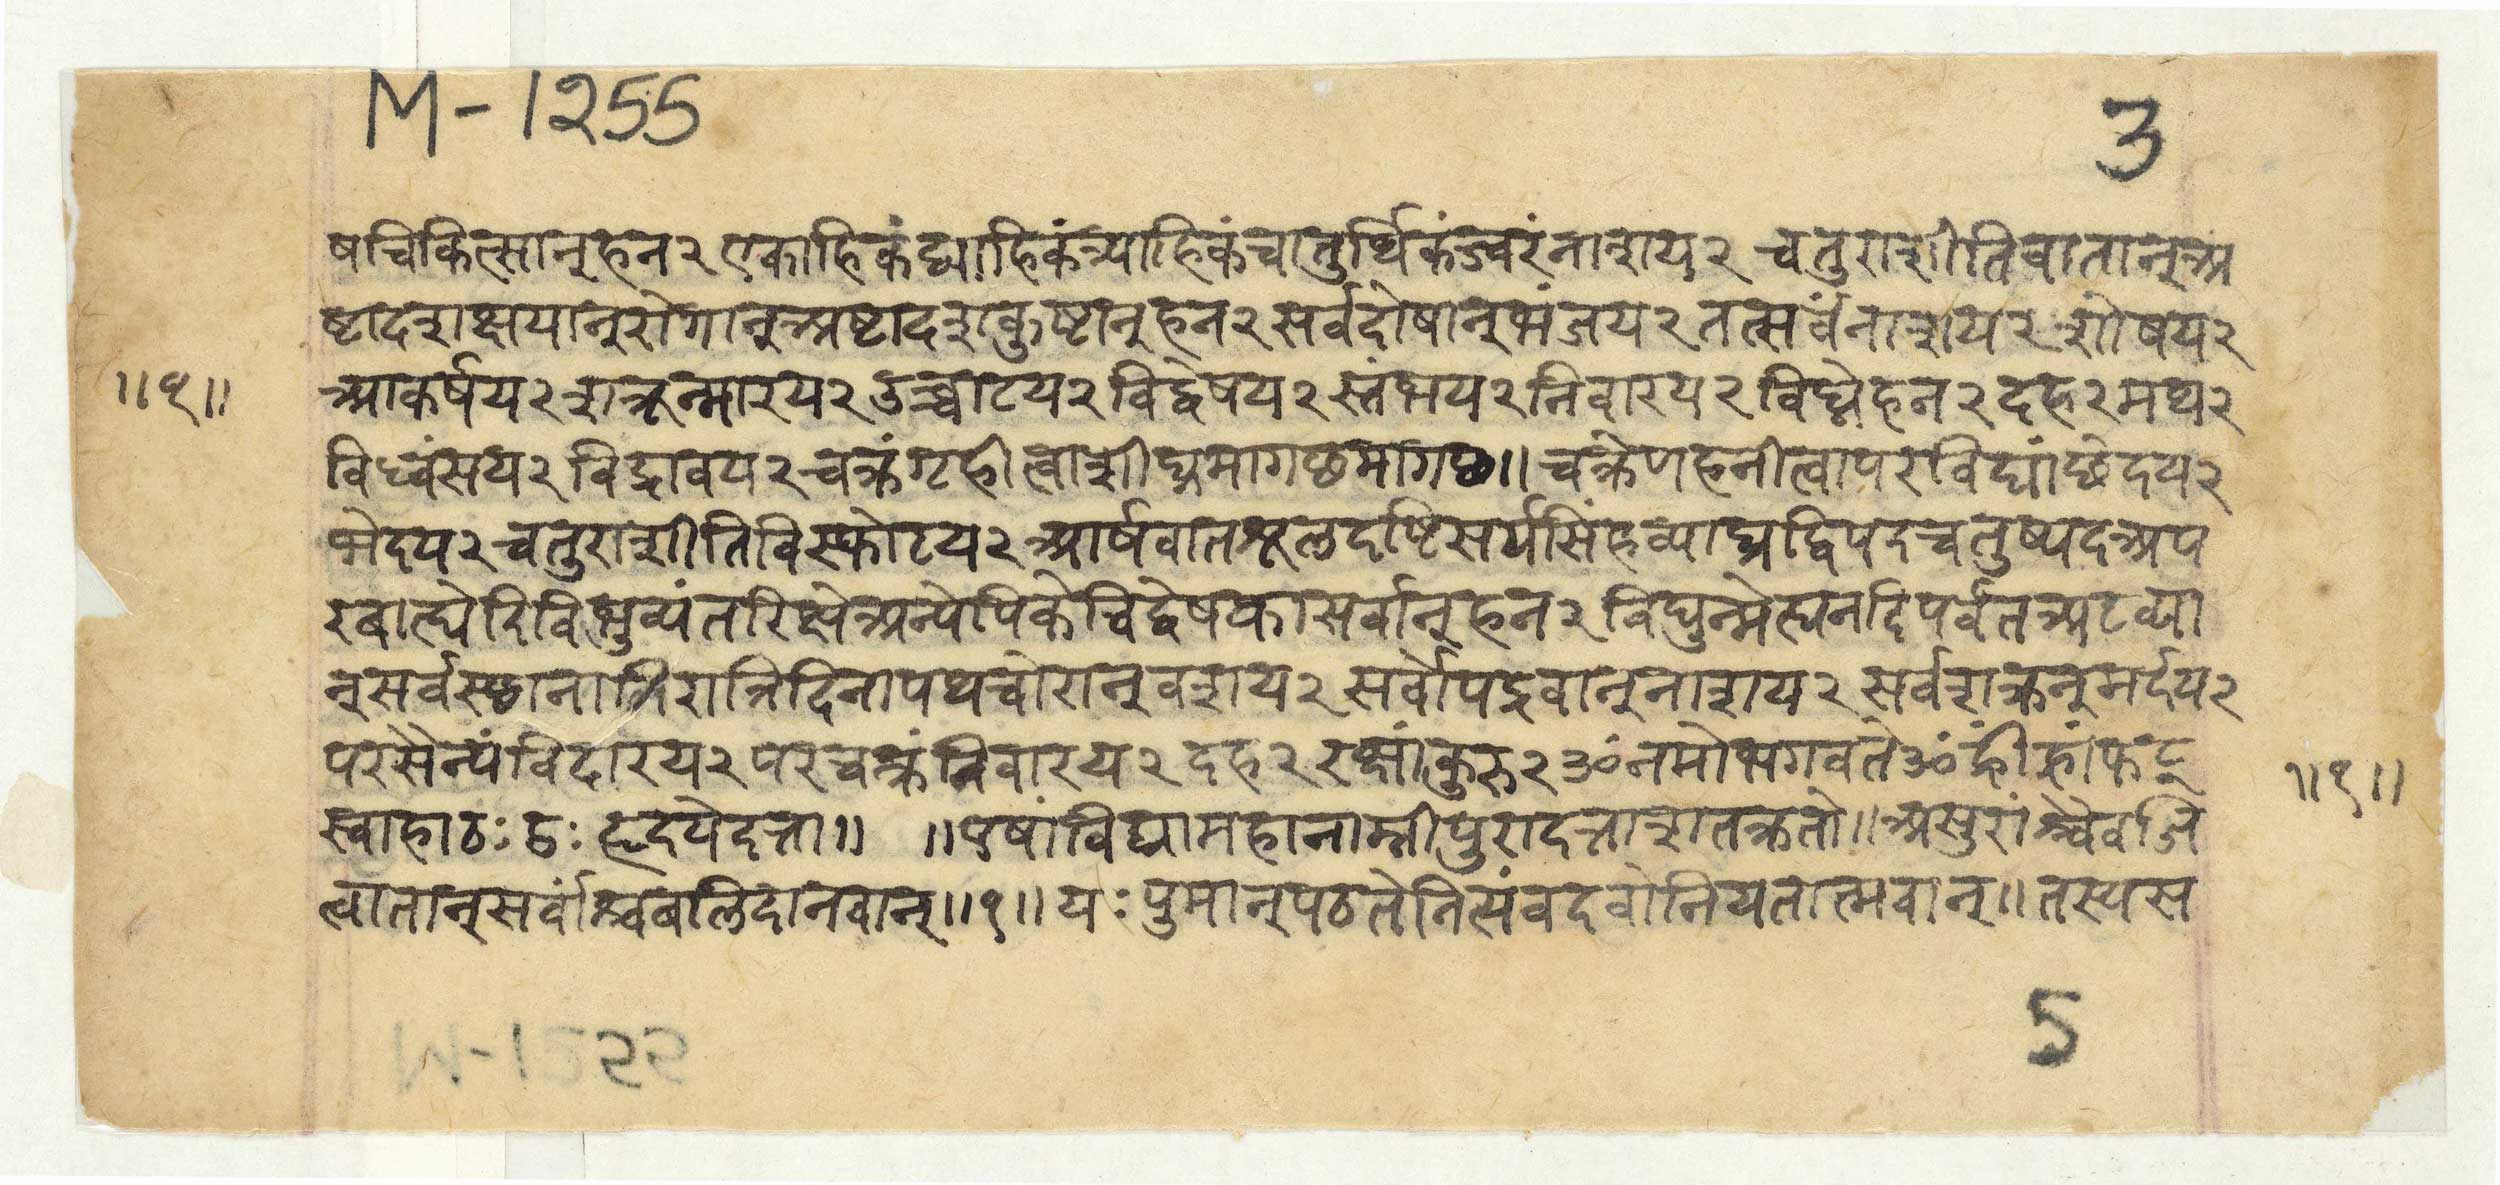 M-1255
3
षचिकित्सान्हन२ एकाहिकंद्व्याहिकंत्र्याहिकंचातुर्थिकंज्वरंनाशय२ चतुराशीतिवातान्अ
ष्टादशक्षयान्रोगान्अष्टादशकुष्टान्हन२ सर्वदोषान्भंजय२ तत्सर्वंनाशय२ शोषय२
॥१॥ आकर्षय२ शत्रून्मारय२ उच्चाटय२ विद्वेषय२ स्तंभय२ निवारय२ विघ्नेहन२ दह२ मथ२
विध्वंसय२ विद्रावय२ चक्रंगृहीत्वाशीघ्रमागछमागछ॥ चक्रेणहनीत्वापरविद्यांछेदय२
भेदय२ चतुराशीतिविस्फोटय२ आर्षवातशूलदृष्टिसर्पसिंहव्याघ्रद्विपदचतुष्पदअप
रबाह्येदिविभुव्यंतरिक्षेअन्येपिकेचिद्वेषकासर्वान्हन२ विद्युन्मेघनदिपर्वतअटव्या
न्सर्वस्छानानिरात्रिदिनापथचोरान्वशय२ सर्वोपद्रवान्नाशय२ सर्वशत्रून्मर्दय२
परसैन्यंविदारय२ परचक्रंनिवारय२ दह२ रक्षांकुरु२ ॐनमोभगवतेॐह्रींह्रांफट्
॥१॥
स्वाहाठः ठः हृदयेदत्ता॥ ॥एषांविद्यामहानाम्नीपुरादत्ताशतक्रतो॥ असुरांश्चैवजि
त्वातान्सर्वांश्चबलिदानवान्॥१॥ यः पुमान्पठतेनित्यंवदवोनियतात्मवान्॥ तस्यस
5